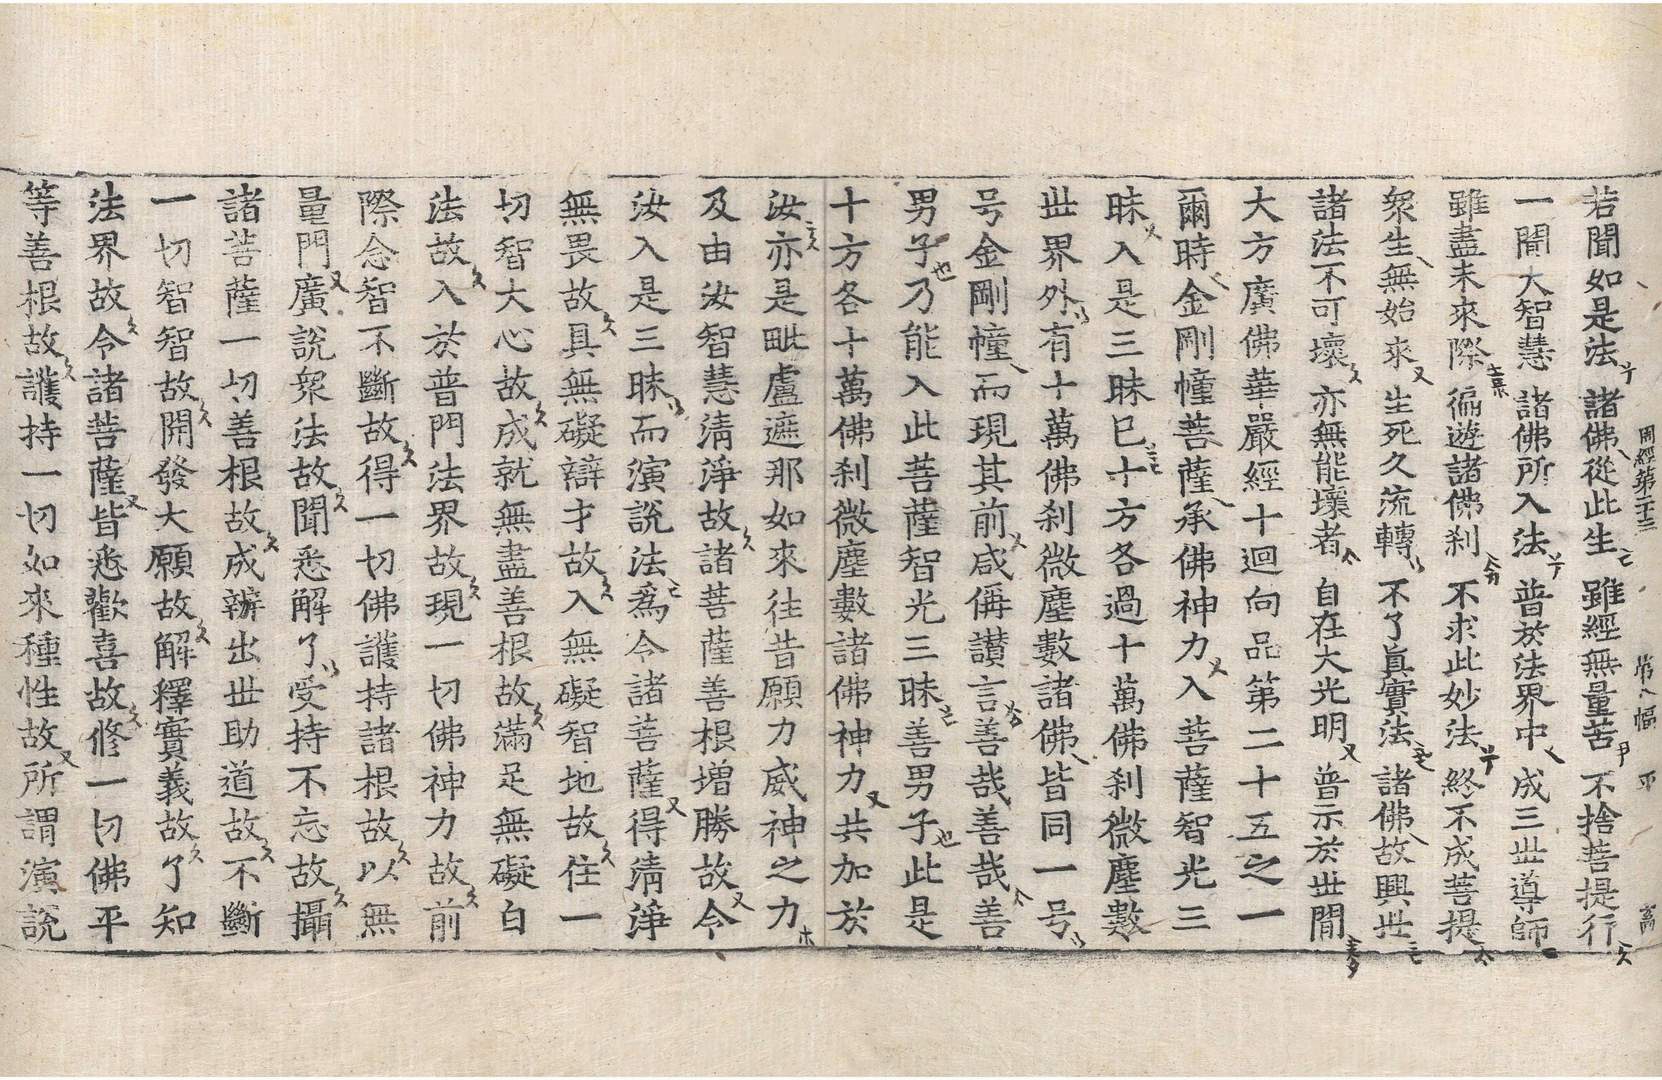 周經第二十三 第八幅 平 富
若聞如是法 諸佛從此生 雖經無量苦 不捨菩提行
一聞大智慧 諸佛所入法 普於法界中 成三世導師
雖盡未來際 徧遊諸佛刹 不求此妙法 終不成菩提
衆生無始來 生死久流轉 不了眞實法 諸佛故興世
諸法不可壞 亦無能壞者 自在大光明 普示於世間
大方廣佛華嚴經十迴向品第二十五之一
爾時金剛幢菩薩承佛神力入菩薩智光三
昧入是三昧已十方各過十萬佛刹微塵數
世界外有十萬佛刹微塵數諸佛皆同一号
号金剛幢而現其前咸偁讃言善哉善哉善
男子乃能入此菩薩智光三昧善男子此是
十方各十萬佛刹微塵數諸佛神力共加於
汝亦是毗盧遮那如來往昔願力威神之力
及由汝智慧清淨故諸菩薩善根增勝故令
汝入是三昧而演說法爲令諸菩薩得清淨
無畏故具無礙辯才故入無礙智地故住一
切智大心故成就無盡善根故滿足無礙白
法故入於普門法界故現一切佛神力故前
際念智不斷故得一切佛護持諸根故以無
量門廣說衆法故聞悉解了受持不忘故攝
諸菩薩一切善根故成辦出世助道故不斷
一切智智故開發大願故解釋實義故了知
法界故令諸菩薩皆悉歡喜故修一切佛平
等善根故護持一切如來種性故所謂演說